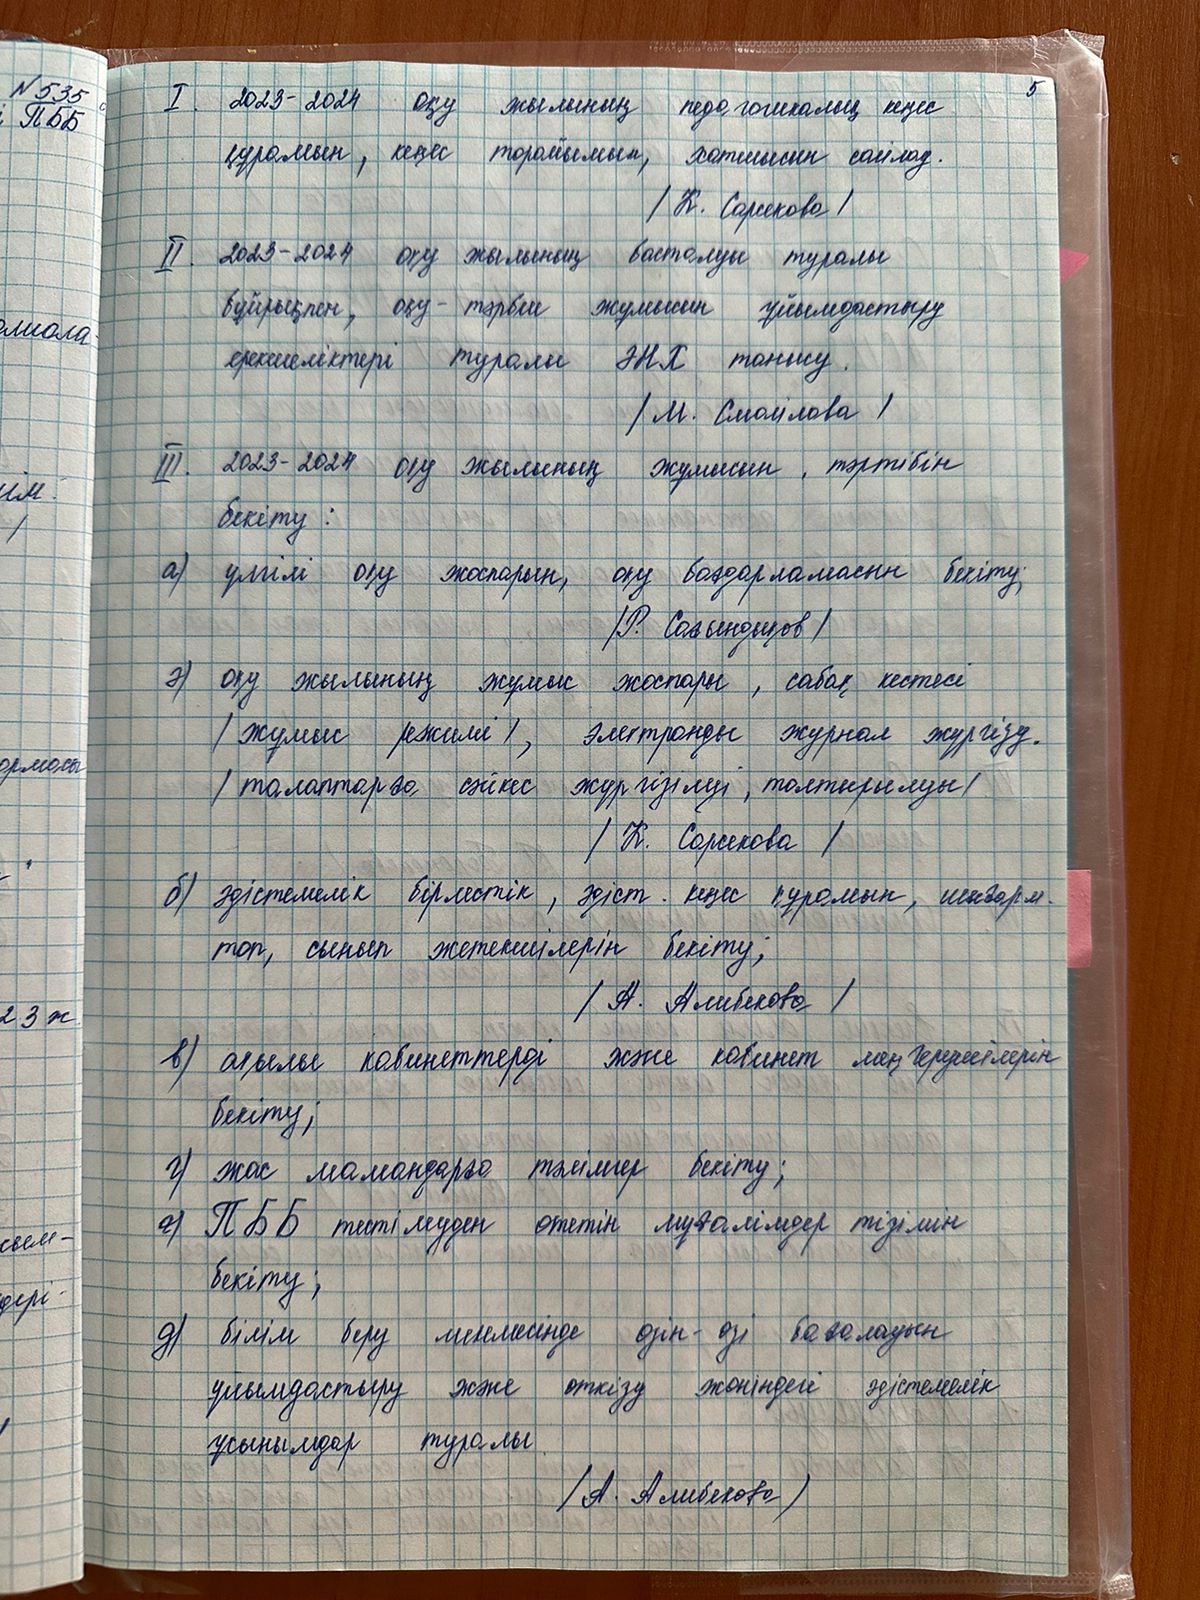 N 535
ПББ
5
I. 2023-2024 оқу жылының педагогикалық кеңес
құрамын, кеңес төрайымын, хатшысын сайлау.
/ К. Сарсекова /
II. 2023-2024 оқу жылының басталуы туралы
бұйрықпен, оқу-тәрбие жұмысын ұйымдастыру
ерекшеліктері туралы ӘНХ танысу.
/ М. Смаилова /
III. 2023-2024 оқу жылының жұмысын, тәртібін
бекіту:
а) үлгілі оқу жоспарын, оқу бағдарламасын бекіту;
/Р. Сағындықов/
ә) оқу жылының жұмыс жоспары, сабақ кестесі
/жұмыс режимі/, электронды журнал жүргізу.
/талаптарға сәйкес жүргізілуі, толтырылуы/
/ К. Сарсекова /
б) әдістемелік бірлестік, әдіст. кеңес құрамын, шығарм.
топ, сынып жетекшілерін бекіту;
/ А. Алибекова /
в) ақылы кабинеттерді және кабинет меңгерушілерін
бекіту;
г) жас мамандарға тәлімгер бекіту;
ғ) ПББ тестілеуден өтетін мұғалімдер тізімін
бекіту;
д) білім беру мекемесінде өзін-өзі бағалауын
ұйымдастыру және өткізу жөніндегі әдістемелік
ұсынымдар туралы
(А. Алибекова)